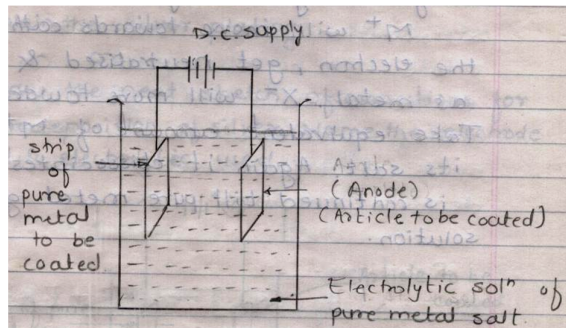 D.C. supply
strip
of
pure
metal
to be
coated
A
(Anode)
(Article to be coated)
Electrolytic solⁿ of
pure metal salt.